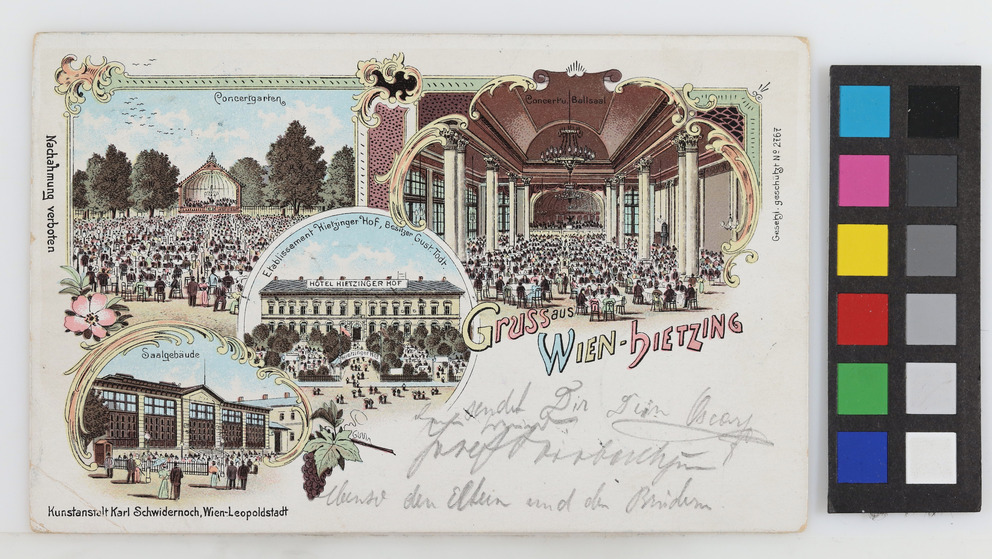 Concertgarten.
Concert u. Ballsaal.
Nachahmung verboten
Gesetzl. geschützt No 2767
Etablissement Hietzinger Hof, Besitzer Gust. Todt.
HÔTEL HIETZINGER HOF
Gruss aus
Wien-Hietzing
Saalgebäude
sendet Dir Dein Oscar
Josef
Ebenso den Eltern und den Brüdern.
Kunstanstalt Karl Schwidernoch, Wien-Leopoldstadt